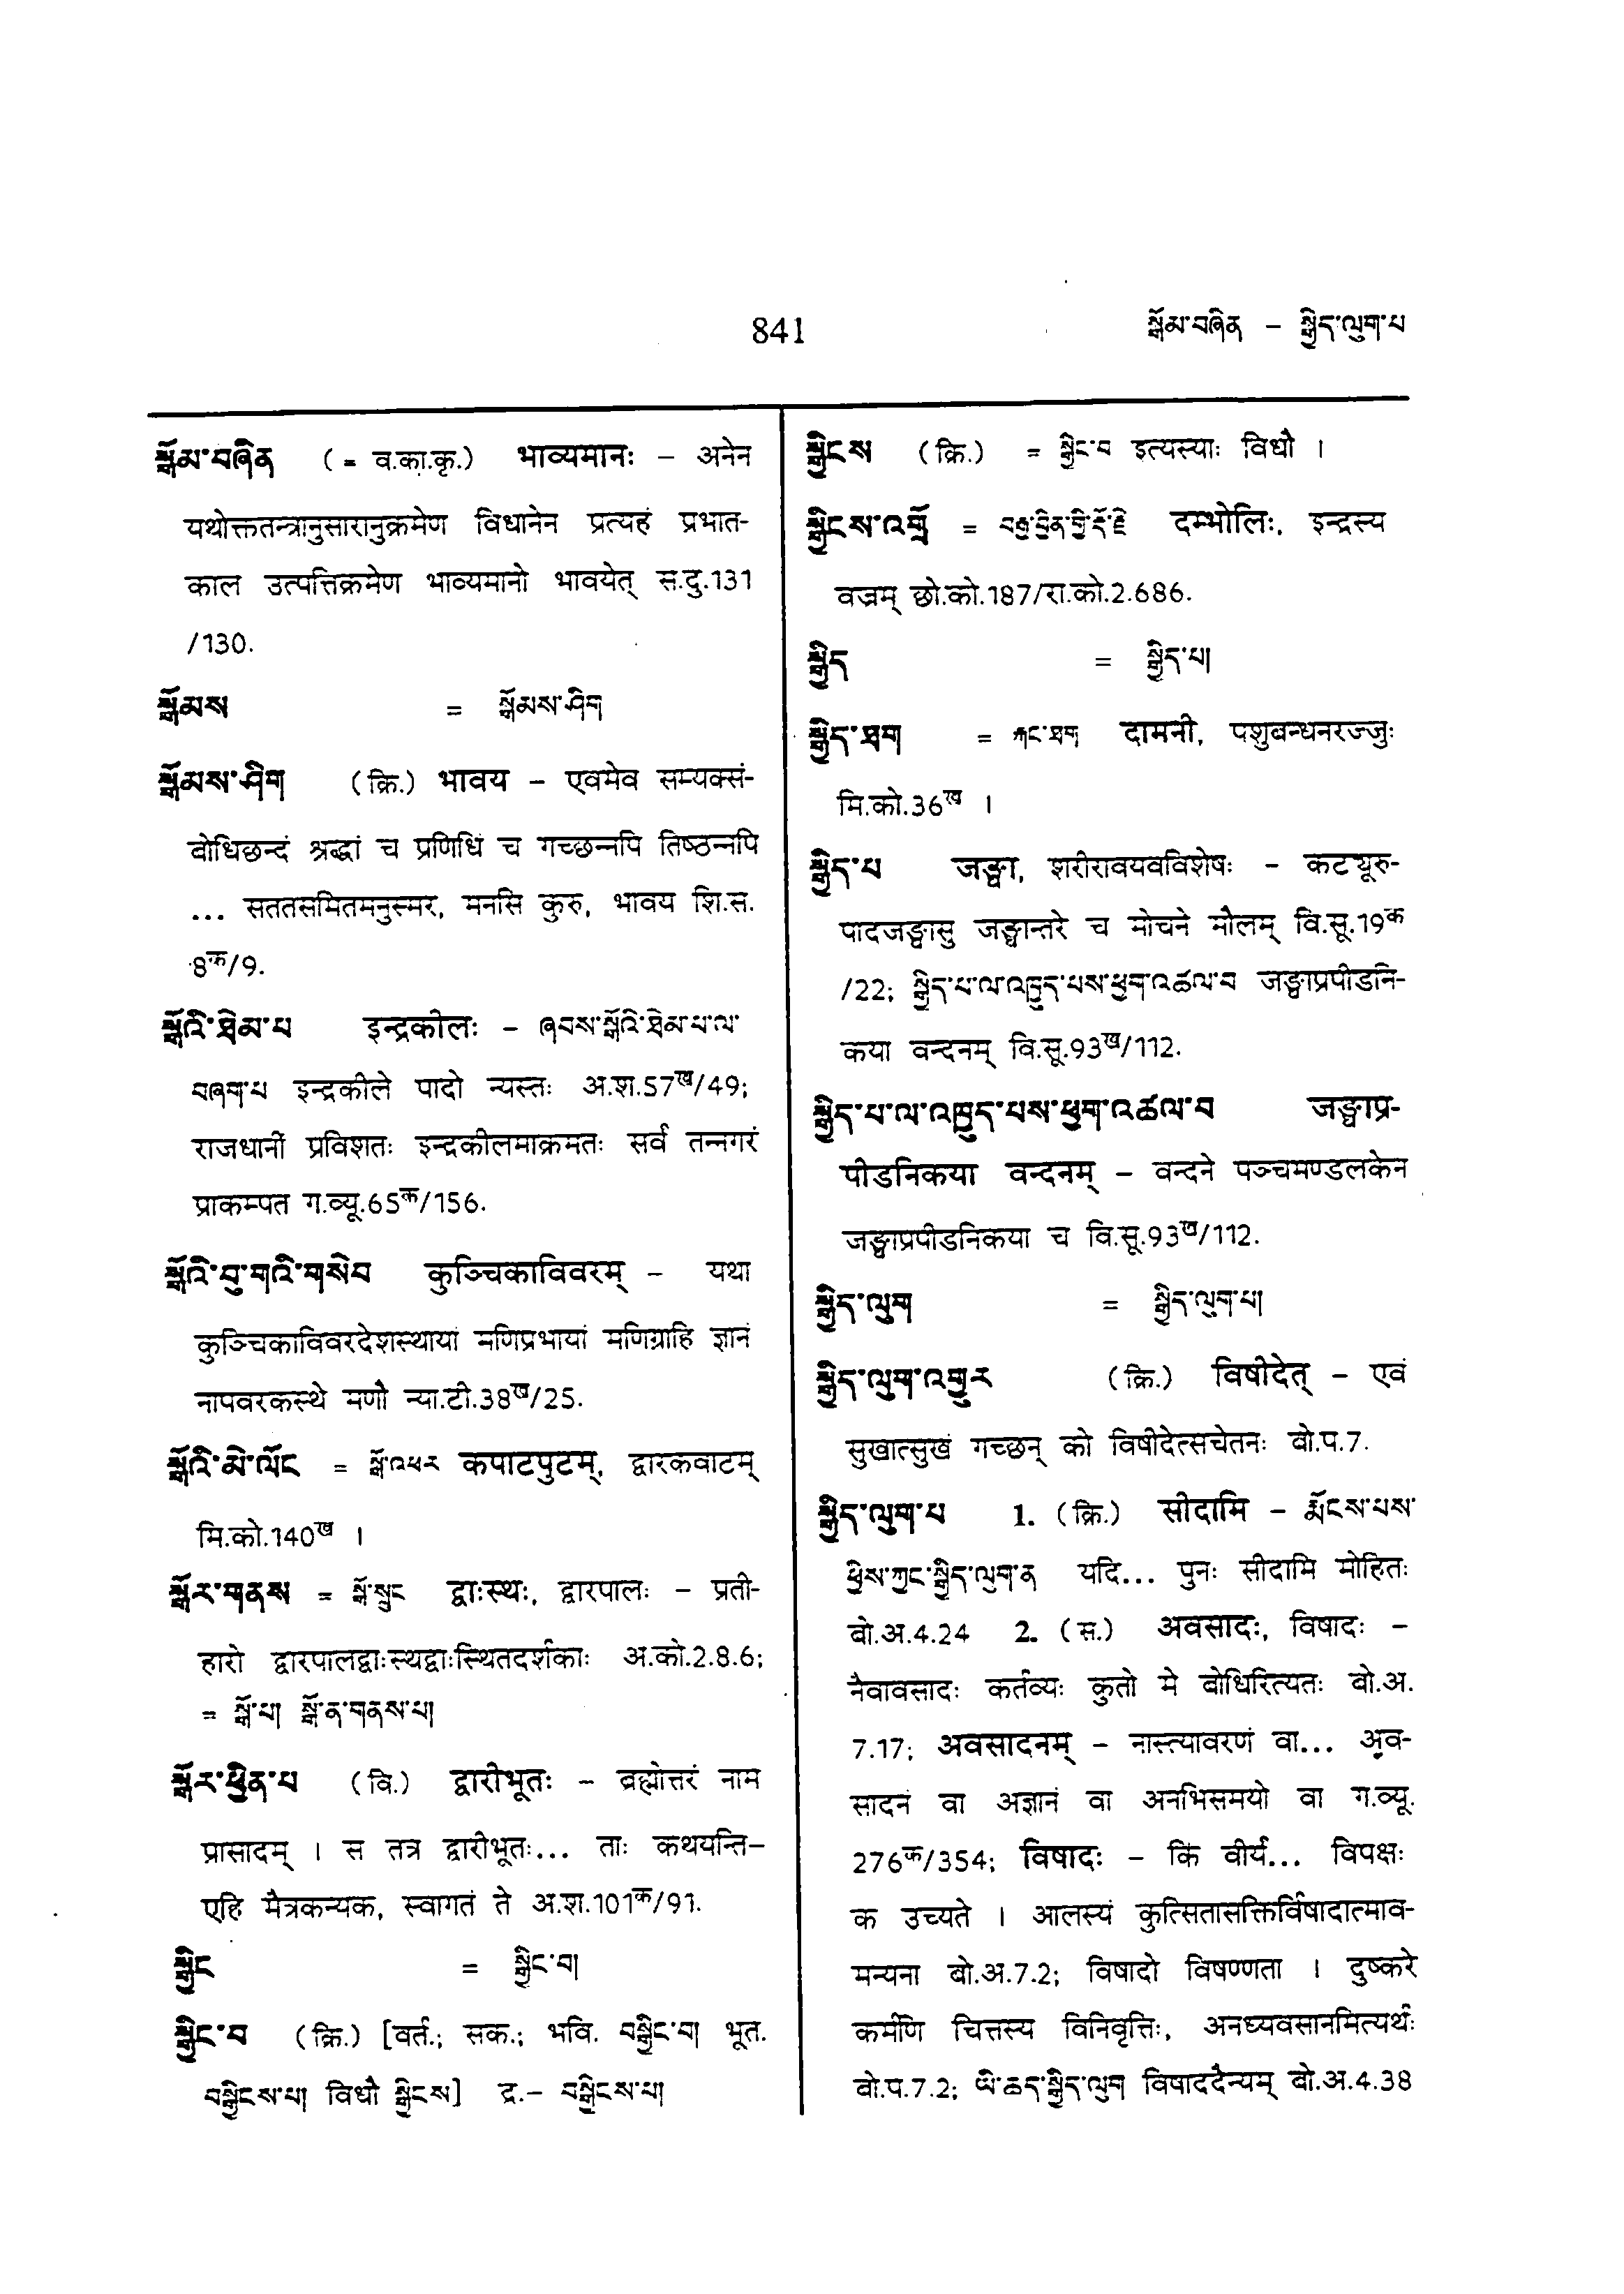 841
སྒོམ་བཞིན – སྒྱིད་ལུག་པ
སྒོམ་བཞིན (= व.का.कृ.) भाव्यमानः – अनेन
यथोक्ततन्त्रानुसारानुक्रमेण विधानेन प्रत्यहं प्रभात-
काल उत्पत्तिक्रमेण भाव्यमानो भावयेत् स.दु.131
/130.
སྒོམས = སྒོམས་ཤིག
སྒོམས་ཤིག (क्रि.) भावय – एवमेव सम्यक्सं-
बोधिछन्दं श्रद्धां च प्रणिधिं च गच्छन्नपि तिष्ठन्नपि
... सततसमितमनुस्मर, मनसि कुरु, भावय शि.स.
8क/9.
སྒོའི་ཐེམ་པ इन्द्रकीलः – ཞབས་སྒོའི་ཐེམ་པ་ལ་
བཞག་པ इन्द्रकीले पादो न्यस्तः अ.श.57ख/49;
राजधानीं प्रविशतः इन्द्रकीलमाक्रमतः सर्वं तन्नगरं
प्राकम्पत ग.व्यू.65क/156.
སྒོའི་བུ་གའི་གསེབ कुञ्चिकाविवरम् – यथा
कुञ्चिकाविवरदेशस्थायां मणिप्रभायां मणिग्राहि ज्ञानं
नापवरकस्थे मणौ न्या.टी.38ख/25.
སྒོའི་མེ་ལོང = སྒོ་འཕར कपाटपुटम्, द्वारकवाटम्
मि.को.140ख ।
སྒོར་གནས = སྒོ་སྲུང द्वाःस्थः, द्वारपालः – प्रती-
हारो द्वारपालद्वाःस्थद्वाःस्थितदर्शकाः अ.को.2.8.6;
= སྒོ་པ། སྒོ་ན་གནས་པ།
སྒོར་ཕྱིན་པ (वि.) द्वारीभूतः – ब्रह्मोत्तरं नाम
प्रासादम् । स तत्र द्वारीभूतः... ताः कथयन्ति–
एहि मैत्रकन्यक, स्वागतं ते अ.श.101क/91.
སྒྱིང = སྒྱིང་བ།
སྒྱིང་བ (क्रि.) [वर्त.; सक.; भवि. བསྒྱིང་བ། भूत.
བསྒྱིངས་པ། विधौ སྒྱིངས] द्र.– བསྒྱིངས་པ།
སྒྱིངས (क्रि.) = སྒྱིང་བ इत्यस्याः विधौ ।
སྒྱིངས་འགྲོ = བརྒྱ་བྱིན་གྱི་རྡོ་རྗེ दम्भोलिः, इन्द्रस्य
वज्रम् छो.को.187/रा.को.2.686.
སྒྱིད = སྒྱིད་པ།
སྒྱིད་ཐག = རྐང་ཐག दामनी, पशुबन्धनरज्जुः
मि.को.36ख ।
སྒྱིད་པ जङ्घा, शरीरावयवविशेषः – कट्यूरु-
पादजङ्घासु जङ्घान्तरे च मोचने मौलम् वि.सू.19क
/22; སྒྱིད་པ་ལ་འཁྱུད་པས་ཕྱག་འཚལ་བ जङ्घाप्रपीडनि-
कया वन्दनम् वि.सू.93ख/112.
སྒྱིད་པ་ལ་འཁྱུད་པས་ཕྱག་འཚལ་བ जङ्घाप्र-
पीडनिकया वन्दनम् – वन्दने पञ्चमण्डलकेन
जङ्घाप्रपीडनिकया च वि.सू.93ख/112.
སྒྱིད་ལུག = སྒྱིད་ལུག་པ།
སྒྱིད་ལུག་འགྱུར (क्रि.) विषीदेत् – एवं
सुखात्सुखं गच्छन् को विषीदेत्सचेतनः बो.प.7.
སྒྱིད་ལུག་པ 1. (क्रि.) सीदामि – རྨོངས་པས་
ཕྱིས་ཀྱང་སྒྱིད་ལུག་ན यदि... पुनः सीदामि मोहितः
बो.अ.4.24 2. (स.) अवसादः, विषादः –
नैवावसादः कर्तव्यः कुतो मे बोधिरित्यतः बो.अ.
7.17; अवसादनम् – नास्त्यावरणं वा... अव-
सादनं वा अज्ञानं वा अनभिसमयो वा ग.व्यू.
276क/354; विषादः – किं वीर्यं... विपक्षः
क उच्यते । आलस्यं कुत्सितासक्तिर्विषादात्माव-
मन्यना बो.अ.7.2; विषादो विषण्णता । दुष्करे
कर्मणि चित्तस्य विनिवृत्तिः, अनध्यवसानमित्यर्थः
बो.प.7.2; ཡི་ཆད་སྒྱིད་ལུག विषाददैन्यम् बो.अ.4.38